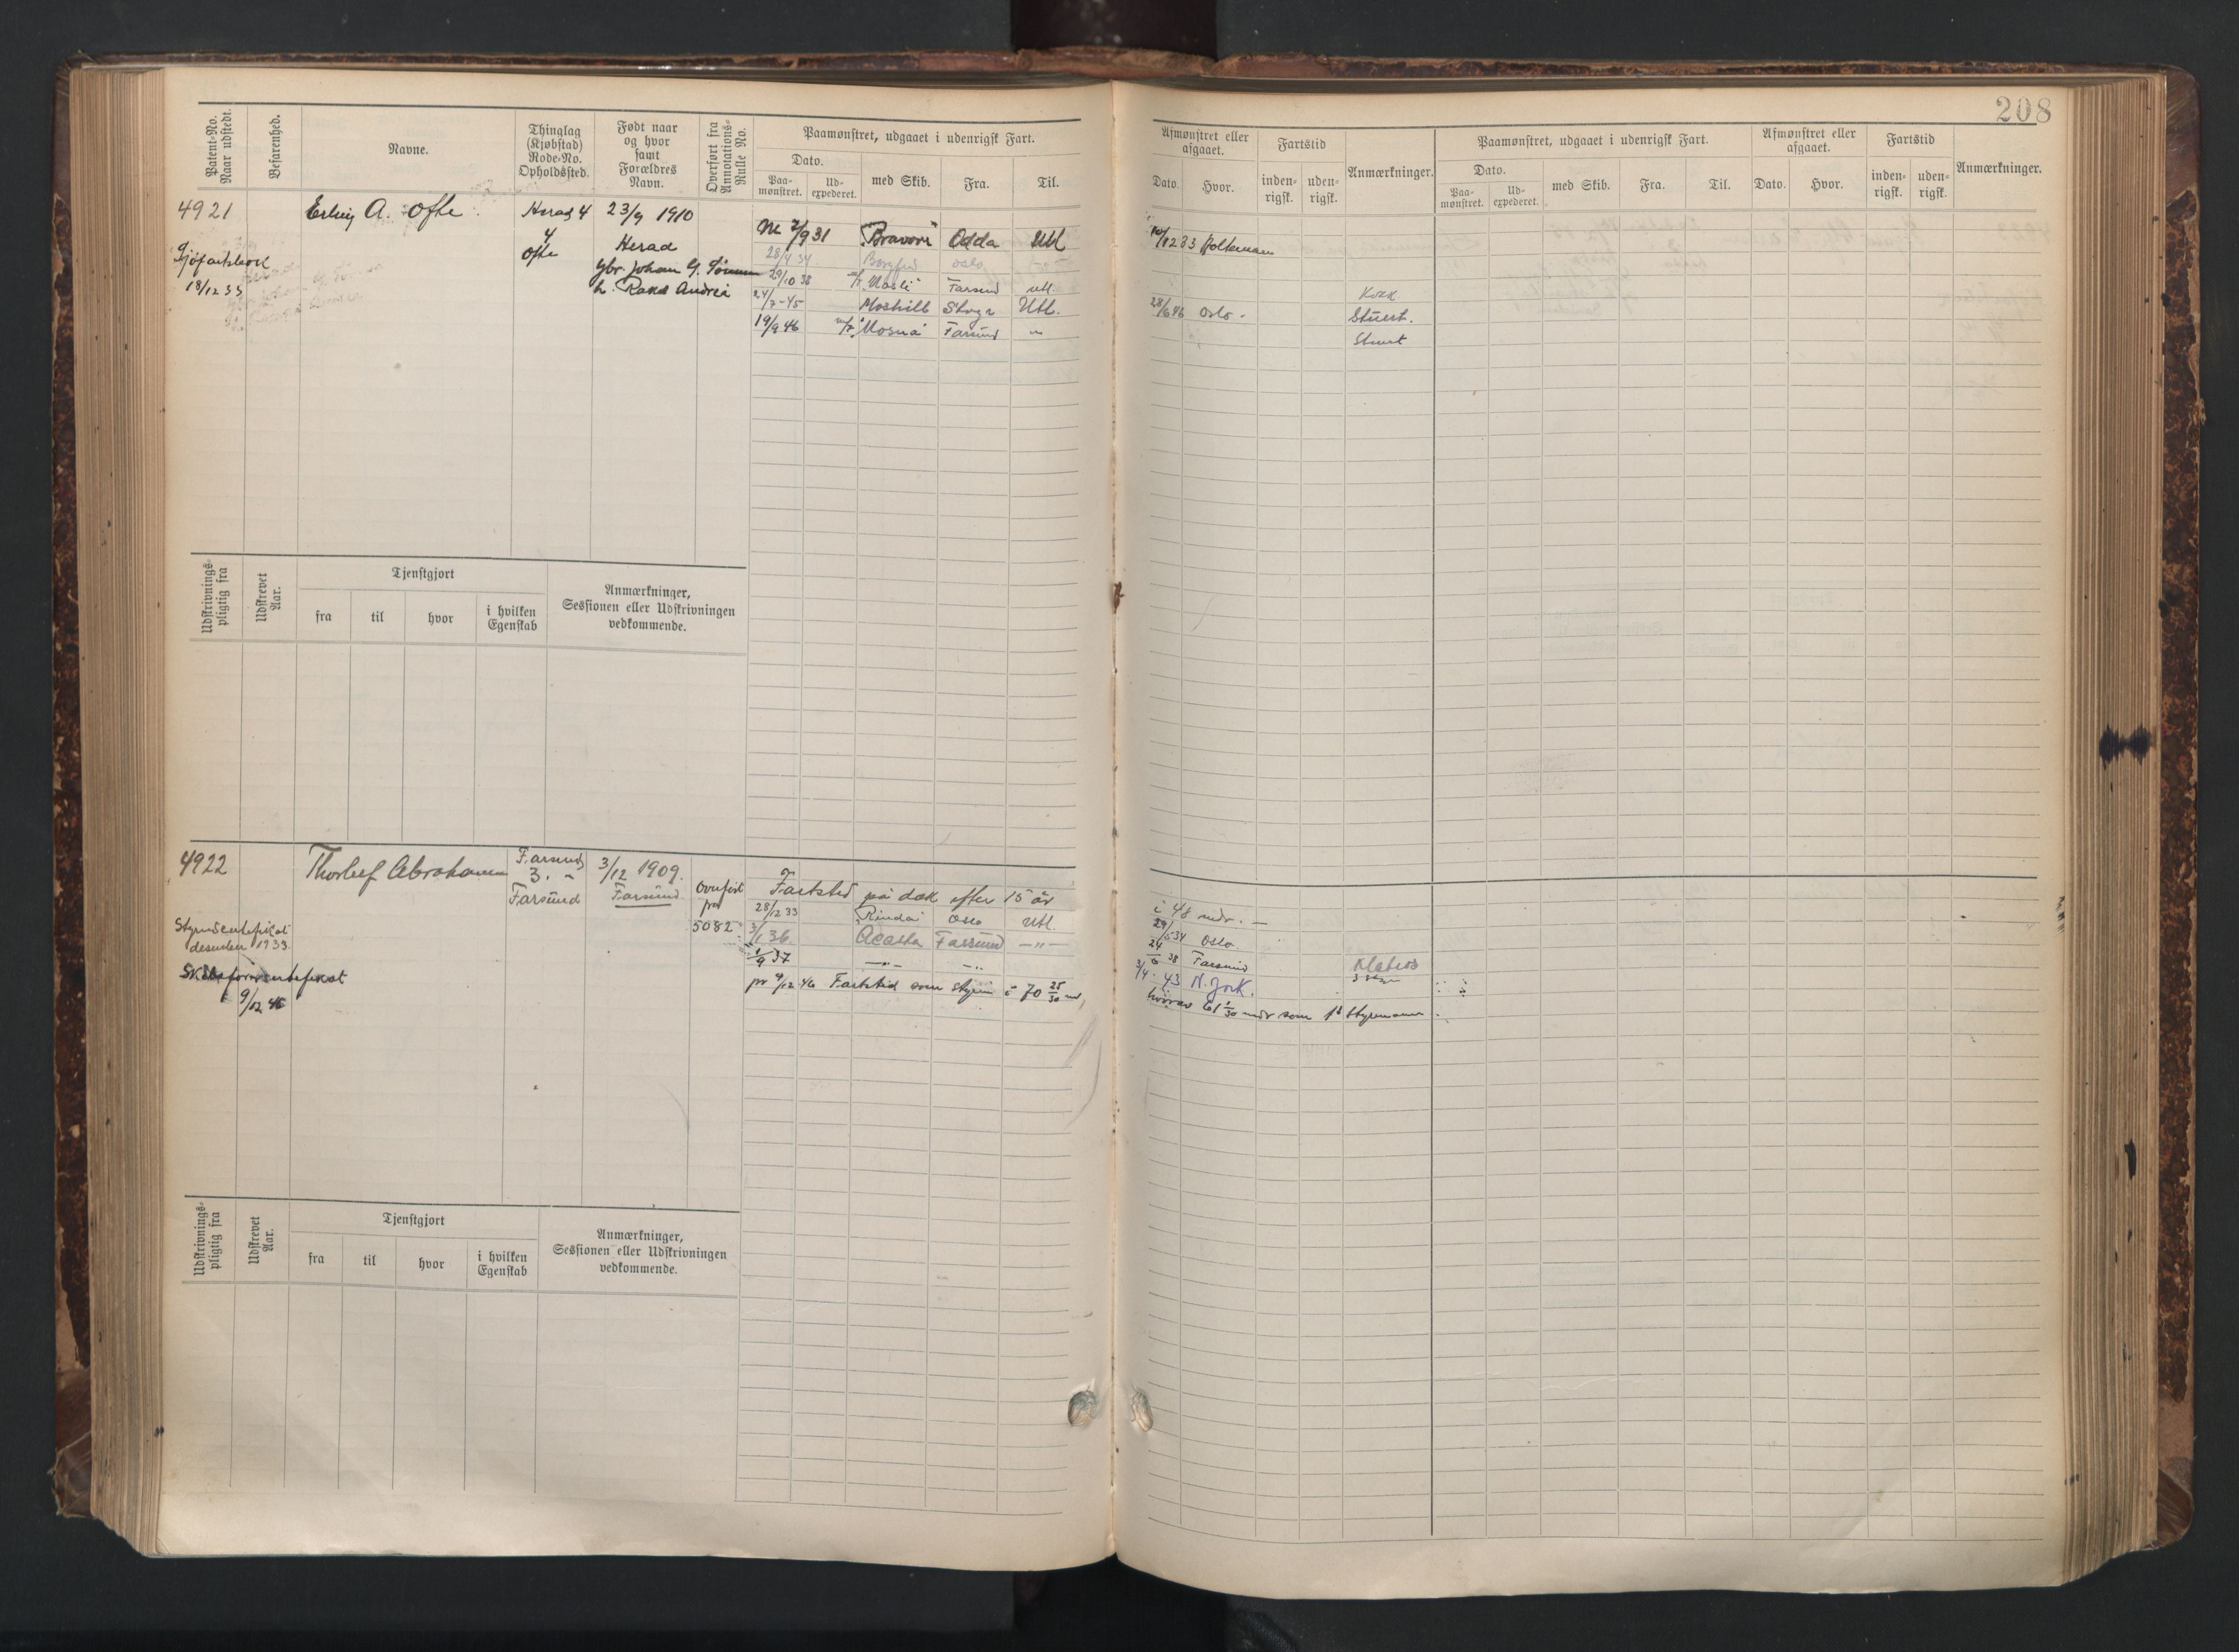 208
Patent-No. Naar udstedt.
Befarenhed.
Navne.
Thinglag (Kjøbstad) Rode-No. Opholdssted.
Født naar og hvor samt Forældres Navn.
Overført fra Annotations-Rulle No.
Paamønstret, udgaaet i udenrigsk Fart.
Dato.
Paa-mønstret.
Ud-expederet.
med Skib.
Fra.
Til.
Afmønstret eller afgaaet.
Dato.
Hvor.
Fartstid
inden-rigsk.
uden-rigsk.
Anmærkninger.
Paamønstret, udgaaet i udenrigsk Fart.
Dato.
Paa-mønstret.
Ud-expederet.
med Skib.
Fra.
Til.
Afmønstret eller afgaaet.
Dato.
Hvor.
Fartstid
inden-rigsk.
uden-rigsk.
Anmærkninger.
4921
Erling A. Ofte
Herad 4
4
Ofte
23/9 1910
Herad
gbr. Johan G.
h. Andrea
18/12 33
2/9 31 Odda Utl
28/4 34 Oslo
29/10 38 Farsund utl.
24/7-45 Moshill Utl.
19/9 46 Farsund
10/12 33
Kokk
28/6 46 Oslo.
Stuert.
Udskrivnings-pligtig fra
Udskrevet Aar.
Tjenstgjort
fra
til
hvor
i hvilken Egenskab
Anmærkninger, Sessionen eller Udskrivningen vedkommende.
4922
Thorleif Abrahamsen
Farsund
3.
Farsund
3/12 1909.
Farsund
Overført
fra
5082
desember 1933
9/12 46
Fartstid på dæk efter 15 år
28/12 33 Rinda Oslo Utl.
3/1 36 Acasta Farsund —"—
1/9 37 —"— —"—
pr 9/12 46 Fartstid som styrm i 70 25/30
i 48 mdr. —
29/5 34 Oslo.
24/6 38 Farsund
Matros
3/4 - 43 N. York.
hvorav 61 1/30 mdr som 1st Styrmann
Udskrivnings-pligtig fra
Udskrevet Aar.
Tjenstgjort
fra
til
hvor
i hvilken Egenskab
Anmærkninger, Sessionen eller Udskrivningen vedkommende.